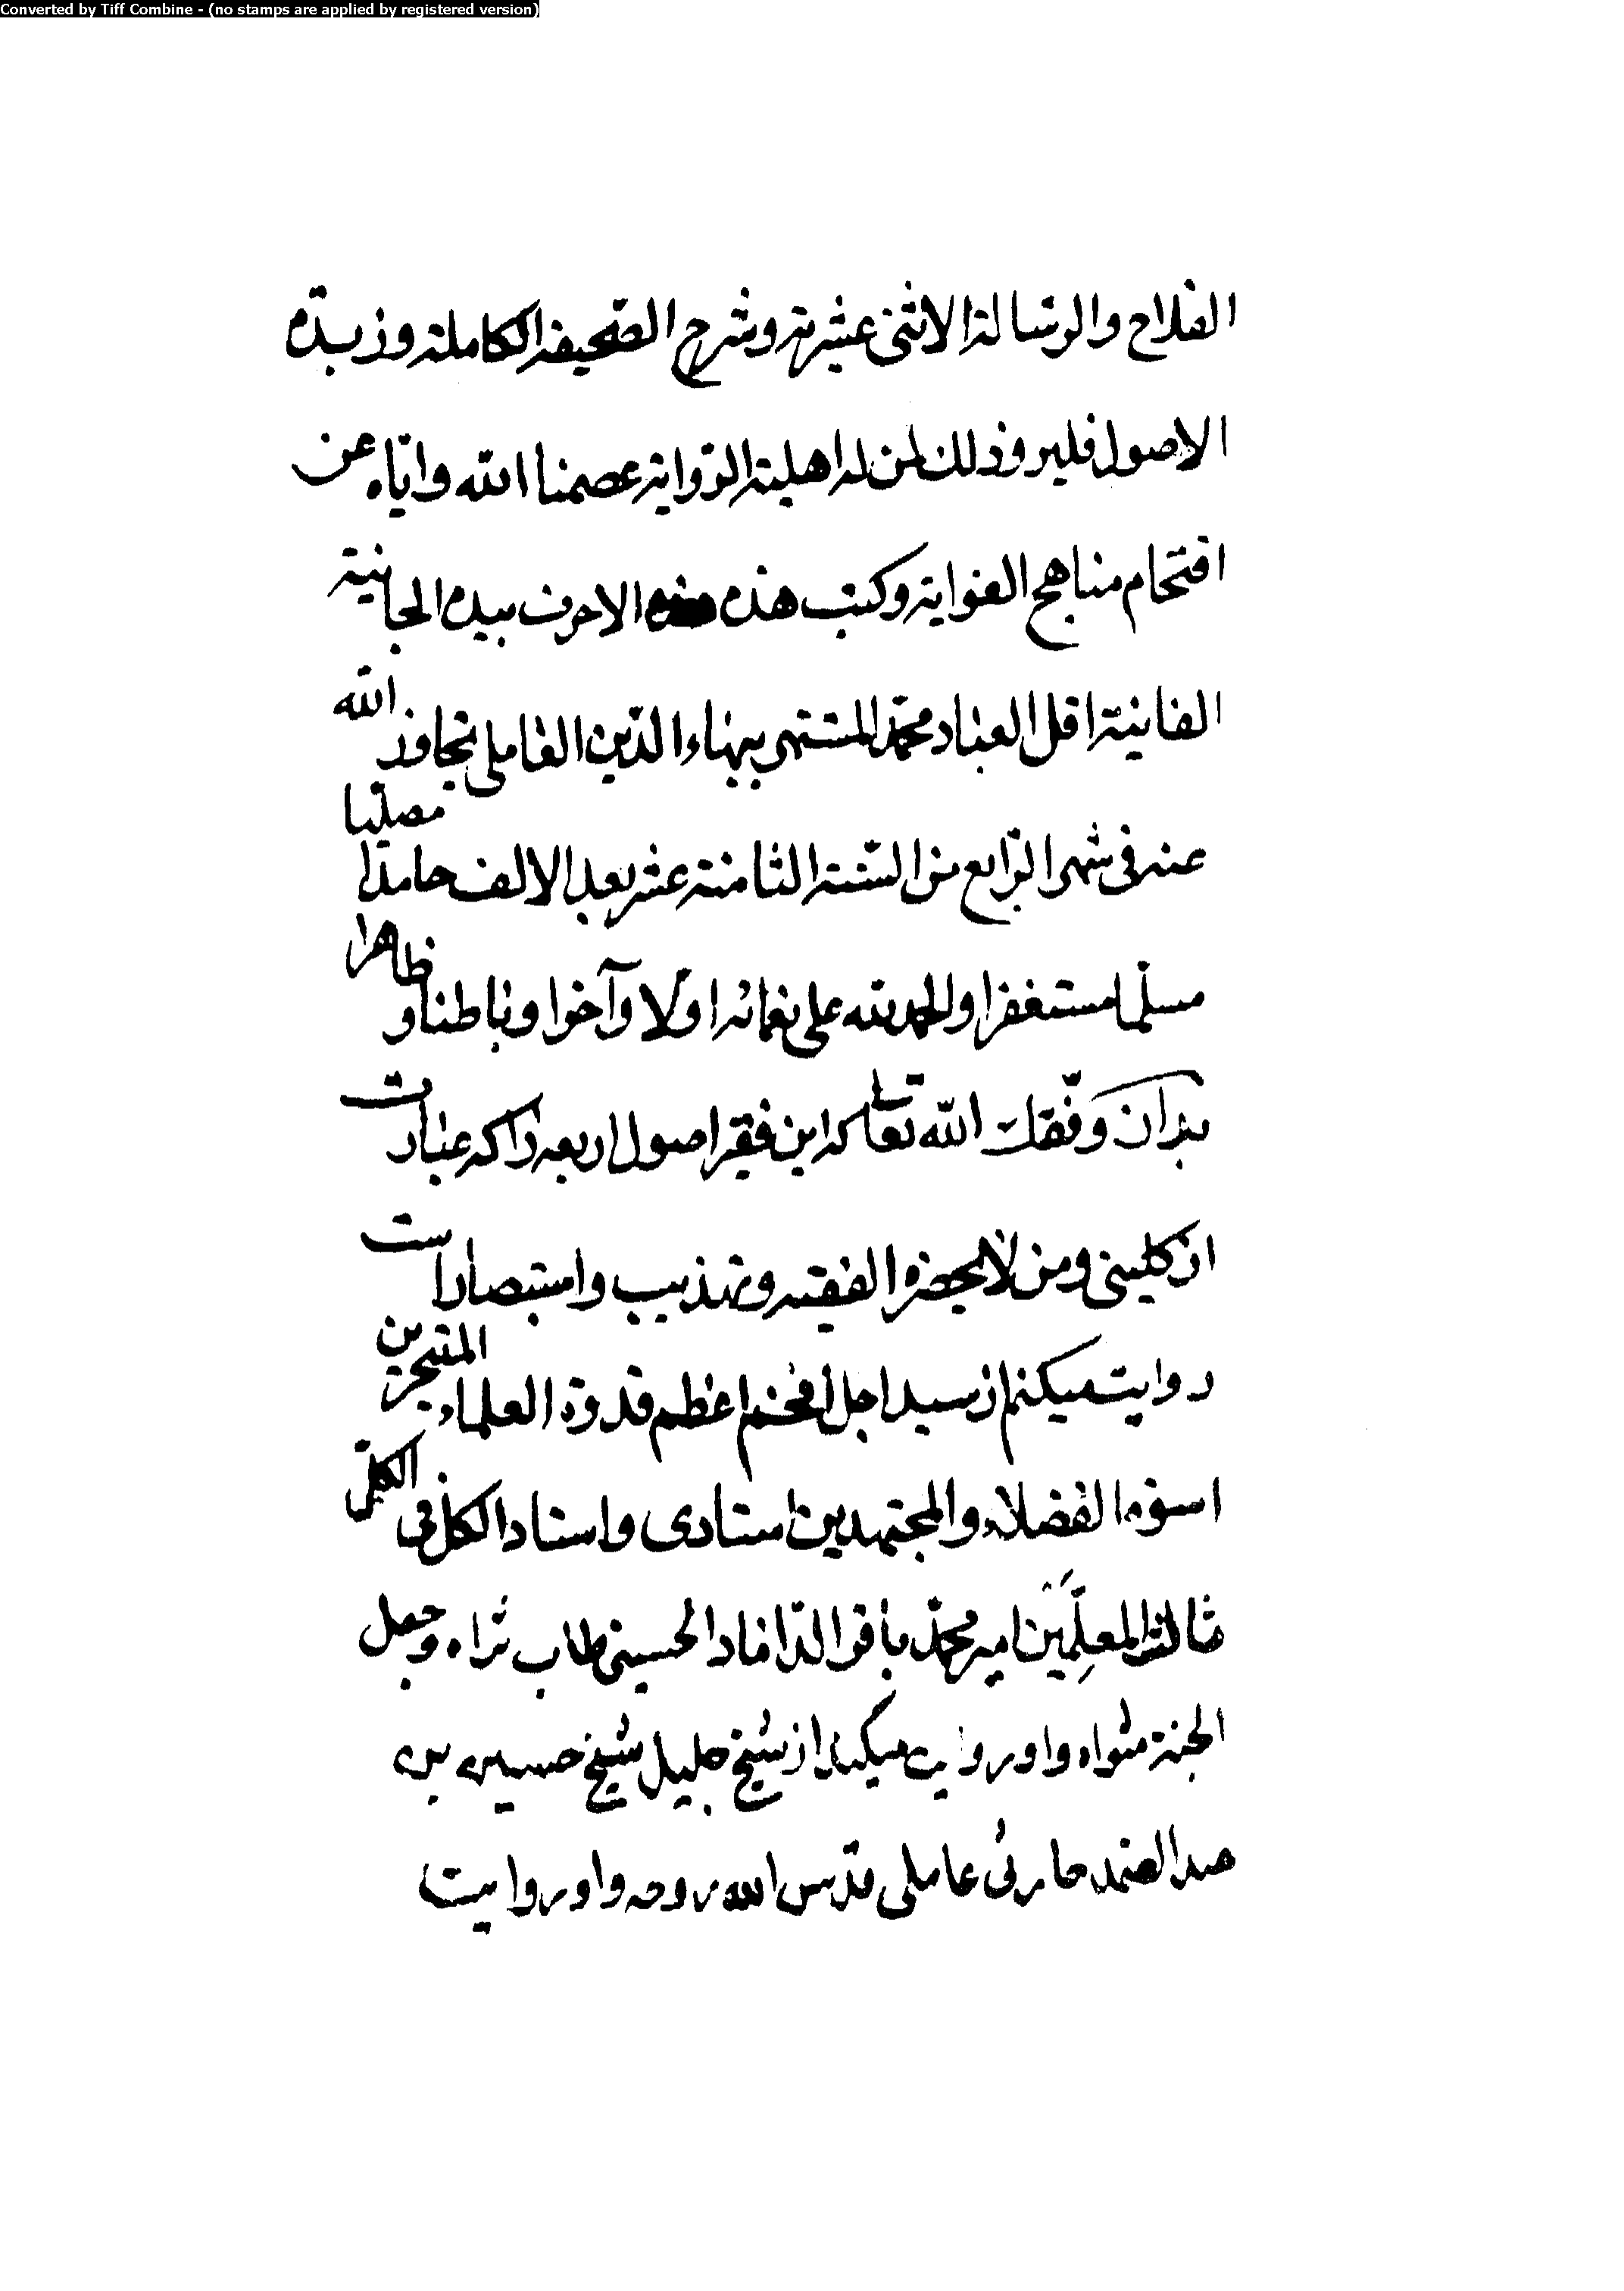 Converted by Tiff Combine - (no stamps are applied by registered version)
الفلاح والرسالة الاثنی عشریة وشرح الصحیفة الکاملة وزبدة
الاصول فلیرو ذلك لمن له اهلیة الروایة عصمنا الله وایّاه عن
اقتحام مناهج الغوایة وکتب هذه الاحرف بیده الجانیة
الفانیة اقل العباد محمّد المشتهر ببهاء الدّین العاملی تجاوز الله
عنه فی شهر الرّابع من السّنة الثامنة عشر بعد الالف حامدًا مصلّیا
مسلّما مستغفرا والحمد لله علی نعمائه اوّلا وآخرا وباطنا و ظاهرا
بدان وفّقك الله تعالی که این فقیر اصول اربعه را که عبارت
از کلینی ومن لا یحضره الفقیه وتهذیب واستبصار است
روایت میکنم از سید اجل افخم اعظم قدوة العلماء المتبحرین
اسوة الفضلاء والمجتهدین استادی واستاد الکل فی الکلّ
ثالث المعلِّمَین امیر محمّد باقر الدّاماد الحسینی طاب ثراه وجعل
الجنة مثواه واو روایت میکند از شیخ جلیل شیخ حسین بن
عبد الصّمد حارثی عاملی قدّس الله روحه واو روایت